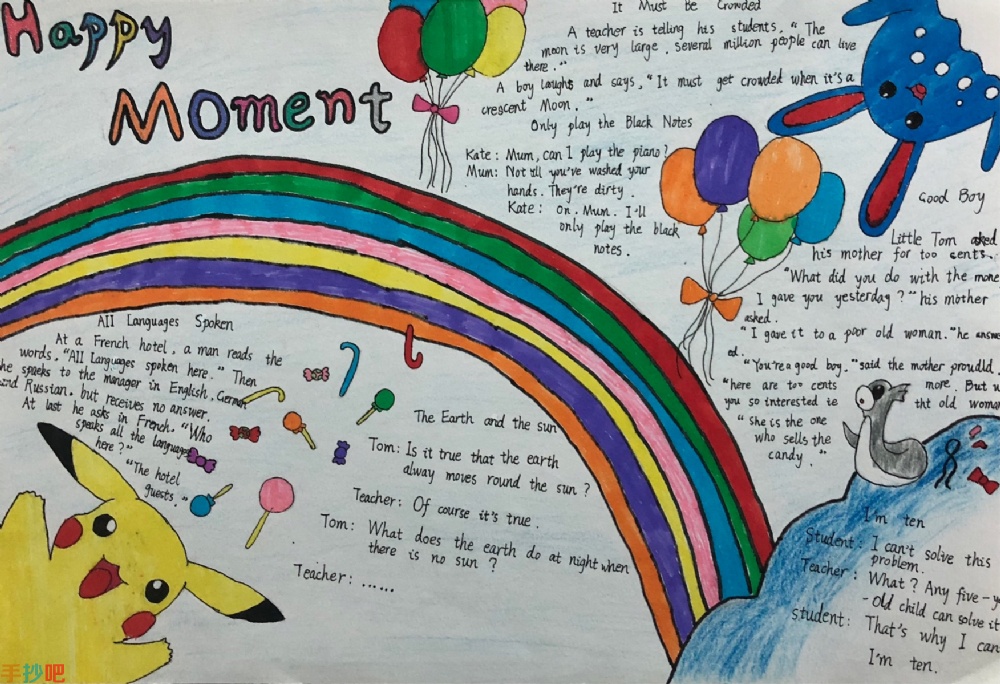 Happy
Moment
It Must Be Crowded
A teacher is telling his students, "The
moon is very large, several million people can live
there."
A boy laughs and says, "It must get crowded when it's a
crescent Moon."
Only play the Black Notes
Kate: Mum, can I play the piano?
Mum: Not till you've washed your
hands. They're dirty.
Kate: On, Mum. I'll
only play the black
notes.
Good Boy
Little Tom asked
his mother for too cents.
"What did you do with the mone
I gave you yesterday?" his mother
asked.
"I gave it to a poor old woman." he answe
ed.
"You're a good boy." said the mother proudld.
"here are too cents more. But w
you so interested ie tht old woma
"She is the one
who sells the
candy."
All Languages Spoken
At a French hotel, a man reads the
words, "All Languages spoken here." Then
he speeks to the manager in English, German
and Russian, but receives no answer.
At last he asks in French. "Who
speaks all the languages
here?"
"The hotel
guests."
The Earth and the sun
Tom: Is it true that the earth
alway moves round the sun?
Teacher: Of course it's true.
Tom: What does the earth do at night when
there is no sun?
Teacher: ......
I'm ten
Student: I can't solve this
problem.
Teacher: What? Any five-y
-old child can solve it
student: That's why I can
I'm ten.
手抄吧